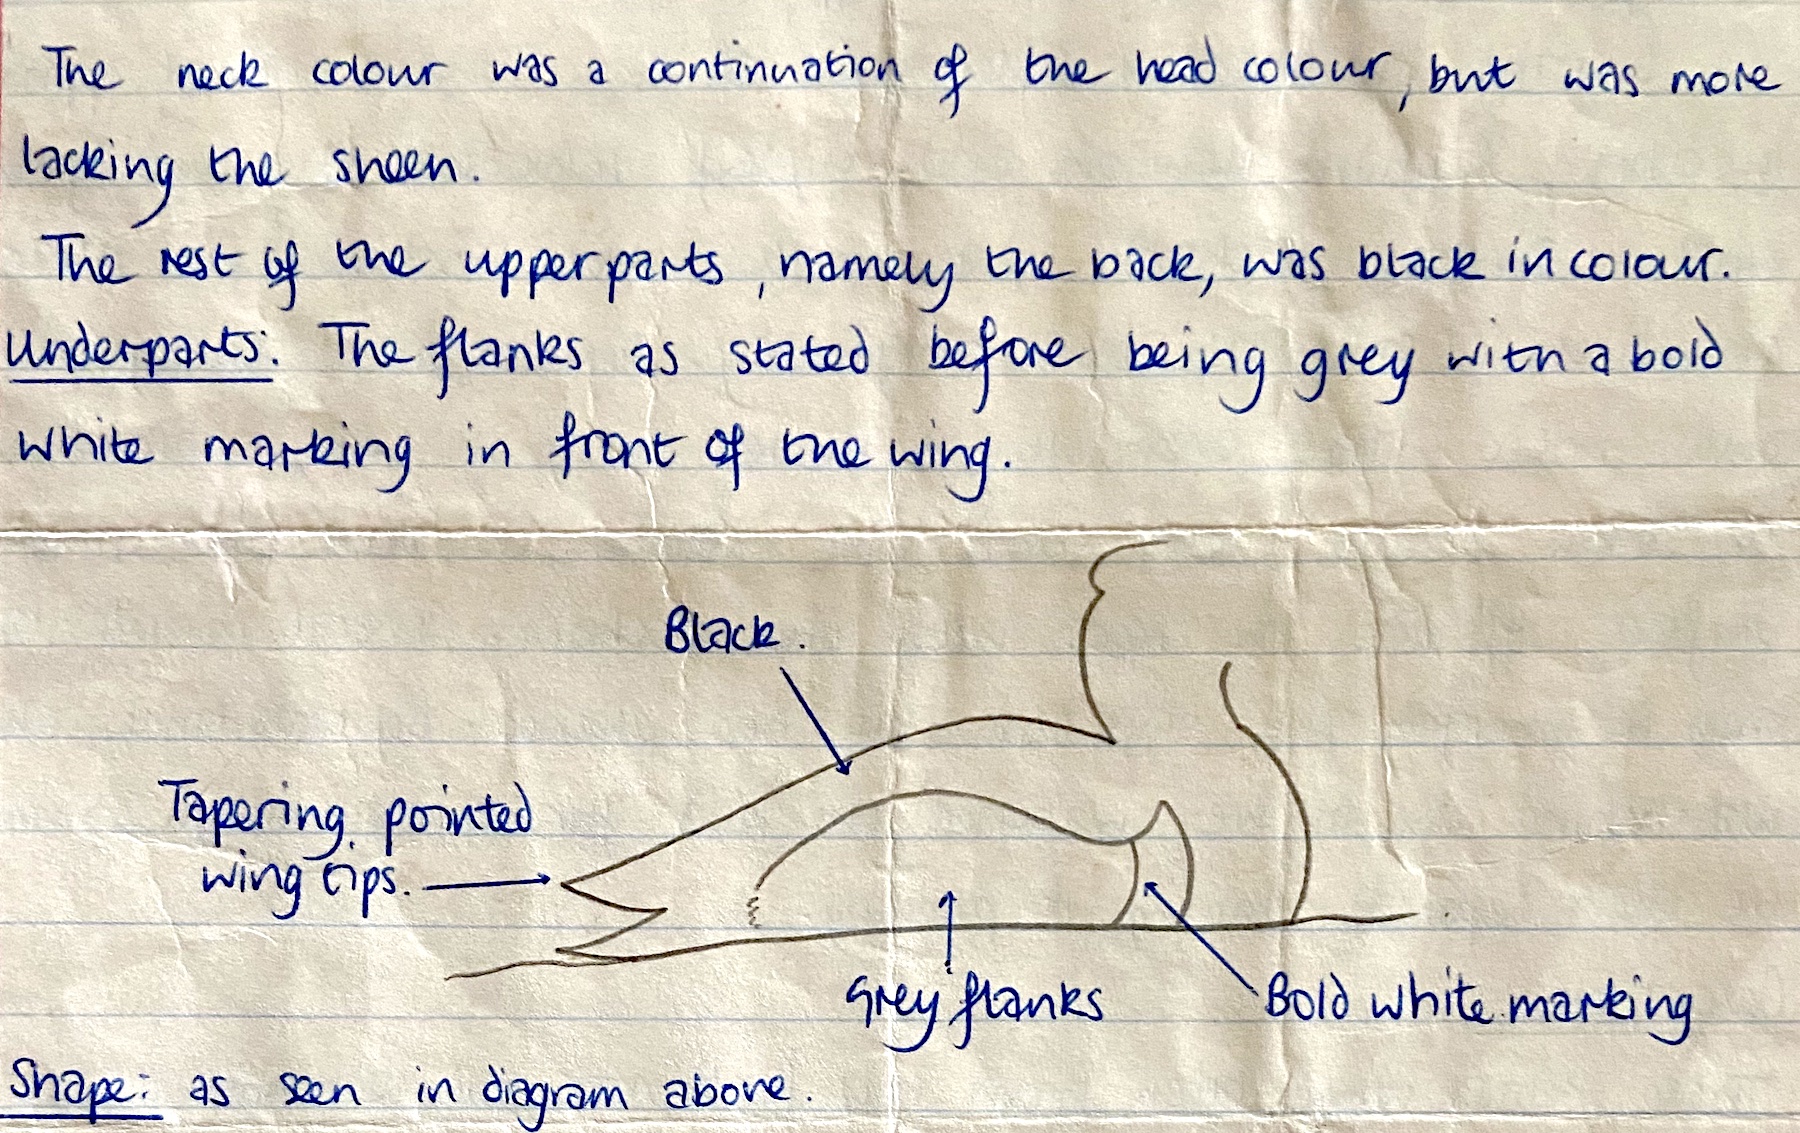 The neck colour was a continuation of the head colour, but was more
lacking the sheen.
The rest of the upperparts, namely the back, was black in colour.
Underparts: The flanks as stated before being grey with a bold
white marking in front of the wing.
Black.
Tapering, pointed
wing tips.
Grey flanks
Bold white marking
Shape: as seen in diagram above.